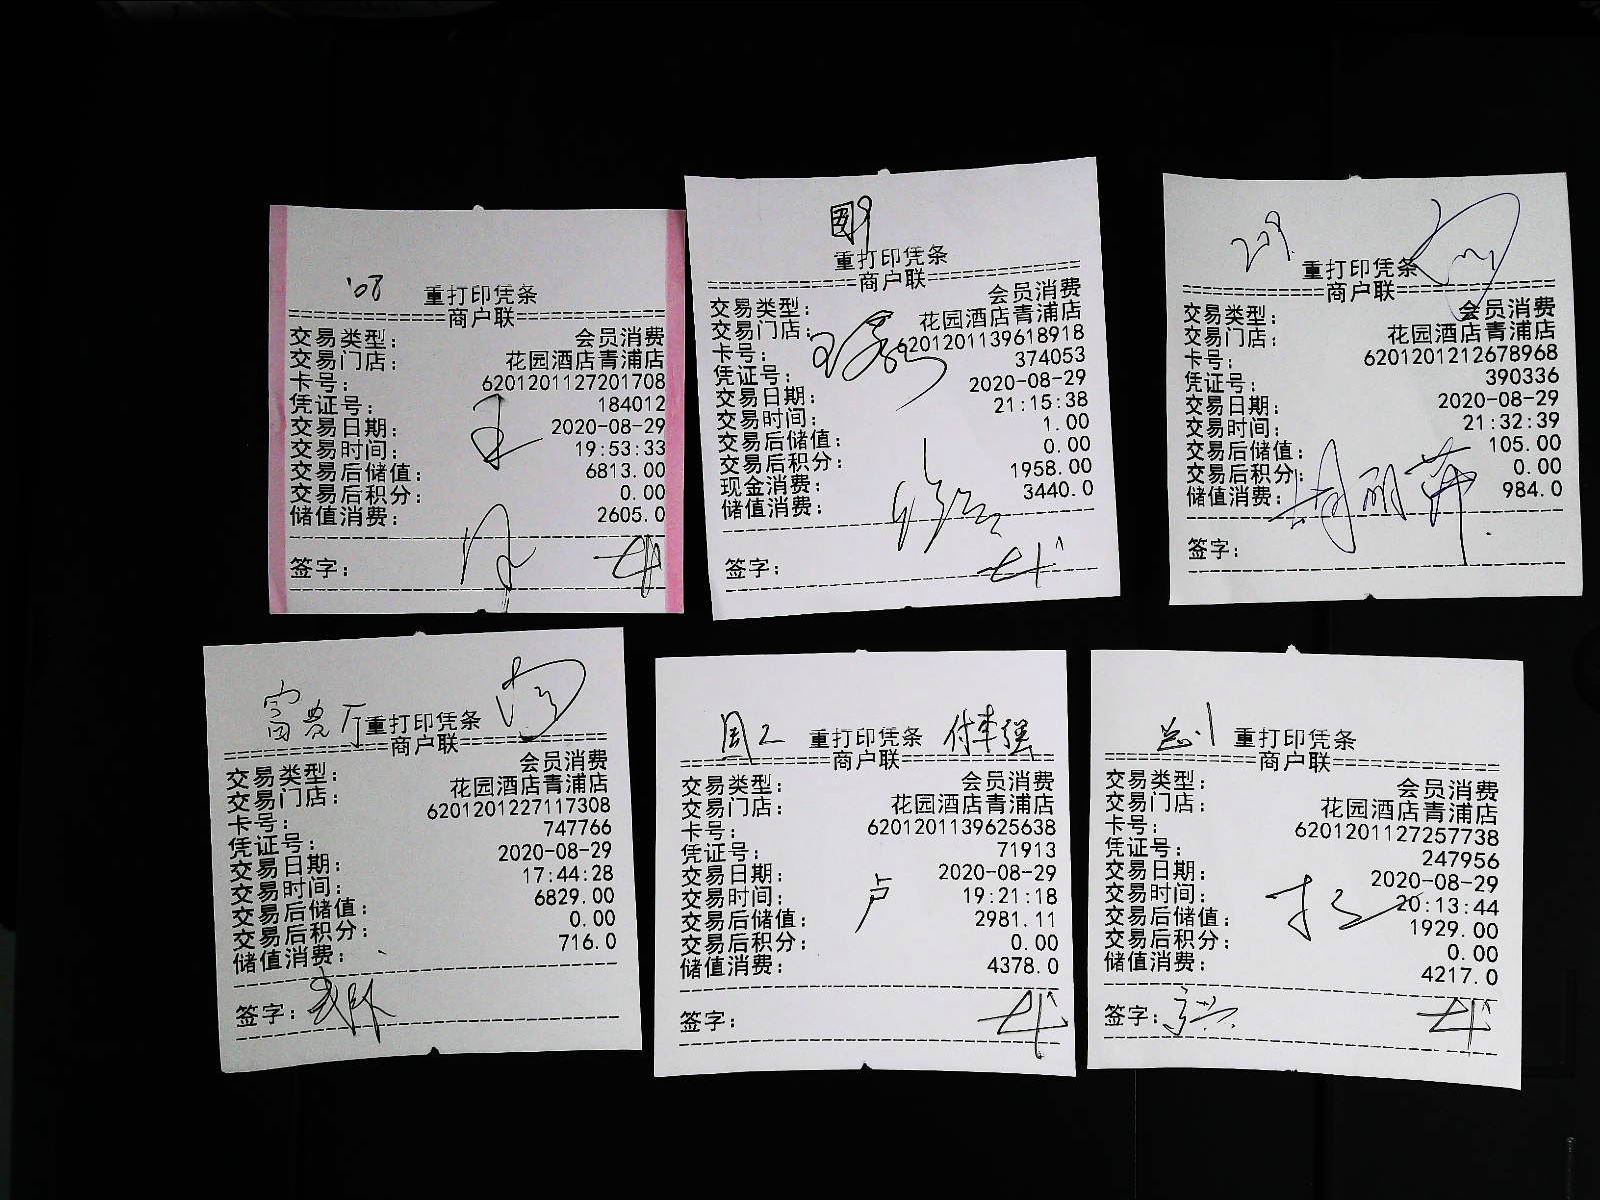 '08
重打印凭条
商户联
交易类型: 会员消费
交易门店: 花园酒店青浦店
卡号: 6201201127201708
凭证号: 184012
交易日期: 2020-08-29
交易时间: 19:53:33
交易后储值: 6813.00
交易后积分: 0.00
储值消费: 2605.0
签字:
重打印凭条
商户联
交易类型: 会员消费
交易门店: 花园酒店青浦店
卡号: 6201201139618918
凭证号: 374053
交易日期: 2020-08-29
交易时间: 21:15:38
交易后储值: 1.00
交易后积分: 0.00
现金消费: 1958.00
储值消费: 3440.0
签字:
209
重打印凭条
商户联
交易类型: 会员消费
交易门店: 花园酒店青浦店
卡号: 6201201212678968
凭证号: 390336
交易日期: 2020-08-29
交易时间: 21:32:39
交易后储值: 105.00
交易后积分: 0.00
储值消费: 984.0
胡丽萍
签字:
富贵厅
重打印凭条
商户联
交易类型: 会员消费
交易门店: 花园酒店青浦店
卡号: 6201201227117308
凭证号: 747766
交易日期: 2020-08-29
交易时间: 17:44:28
交易后储值: 6829.00
交易后积分: 0.00
储值消费: 716.0
签字:
重打印凭条 付幸强
商户联
交易类型: 会员消费
交易门店: 花园酒店青浦店
卡号: 6201201139625638
凭证号: 71913
交易日期: 2020-08-29
交易时间: 19:21:18
卢
交易后储值: 2981.11
交易后积分: 0.00
储值消费: 4378.0
签字:
重打印凭条
商户联
交易类型: 会员消费
交易门店: 花园酒店青浦店
卡号: 6201201127257738
凭证号: 247956
交易日期: 2020-08-29
交易时间: 20:13:44
交易后储值: 1929.00
交易后积分: 0.00
储值消费: 4217.0
签字: